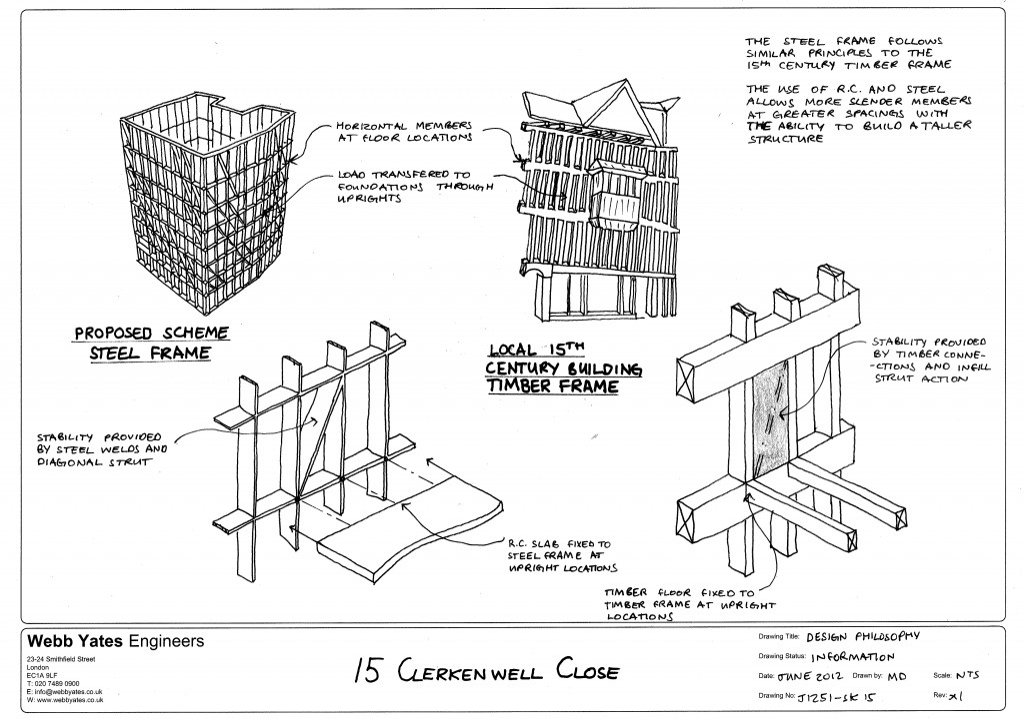 THE STEEL FRAME FOLLOWS
SIMILAR PRINCIPLES TO THE
15TH CENTURY TIMBER FRAME
THE USE OF R.C. AND STEEL
ALLOWS MORE SLENDER MEMBERS
AT GREATER SPACINGS WITH
THE ABILITY TO BUILD A TALLER
STRUCTURE
HORIZONTAL MEMBERS
AT FLOOR LOCATIONS
LOAD TRANSFERED TO
FOUNDATIONS THROUGH
UPRIGHTS
PROPOSED SCHEME
STEEL FRAME
LOCAL 15TH
CENTURY BUILDING
TIMBER FRAME
STABILITY PROVIDED
BY TIMBER CONNE-
-CTIONS AND INFILL
STRUT ACTION
STABILITY PROVIDED
BY STEEL WELDS AND
DIAGONAL STRUT
R.C. SLAB FIXED TO
STEEL FRAME AT
UPRIGHT LOCATIONS
TIMBER FLOOR FIXED TO
TIMBER FRAME AT UPRIGHT
LOCATIONS
Webb Yates Engineers
23-24 Smithfield Street
London
EC1A 9LF
T: 020 7489 0900
E: info@webbyates.co.uk
W: www.webbyates.co.uk
15 CLERKENWELL CLOSE
Drawing Title: DESIGN PHILOSOPHY
Drawing Status: INFORMATION
Date: JUNE 2012 Drawn by: MD Scale: NTS
Drawing No: J1251-SK15 Rev: X1